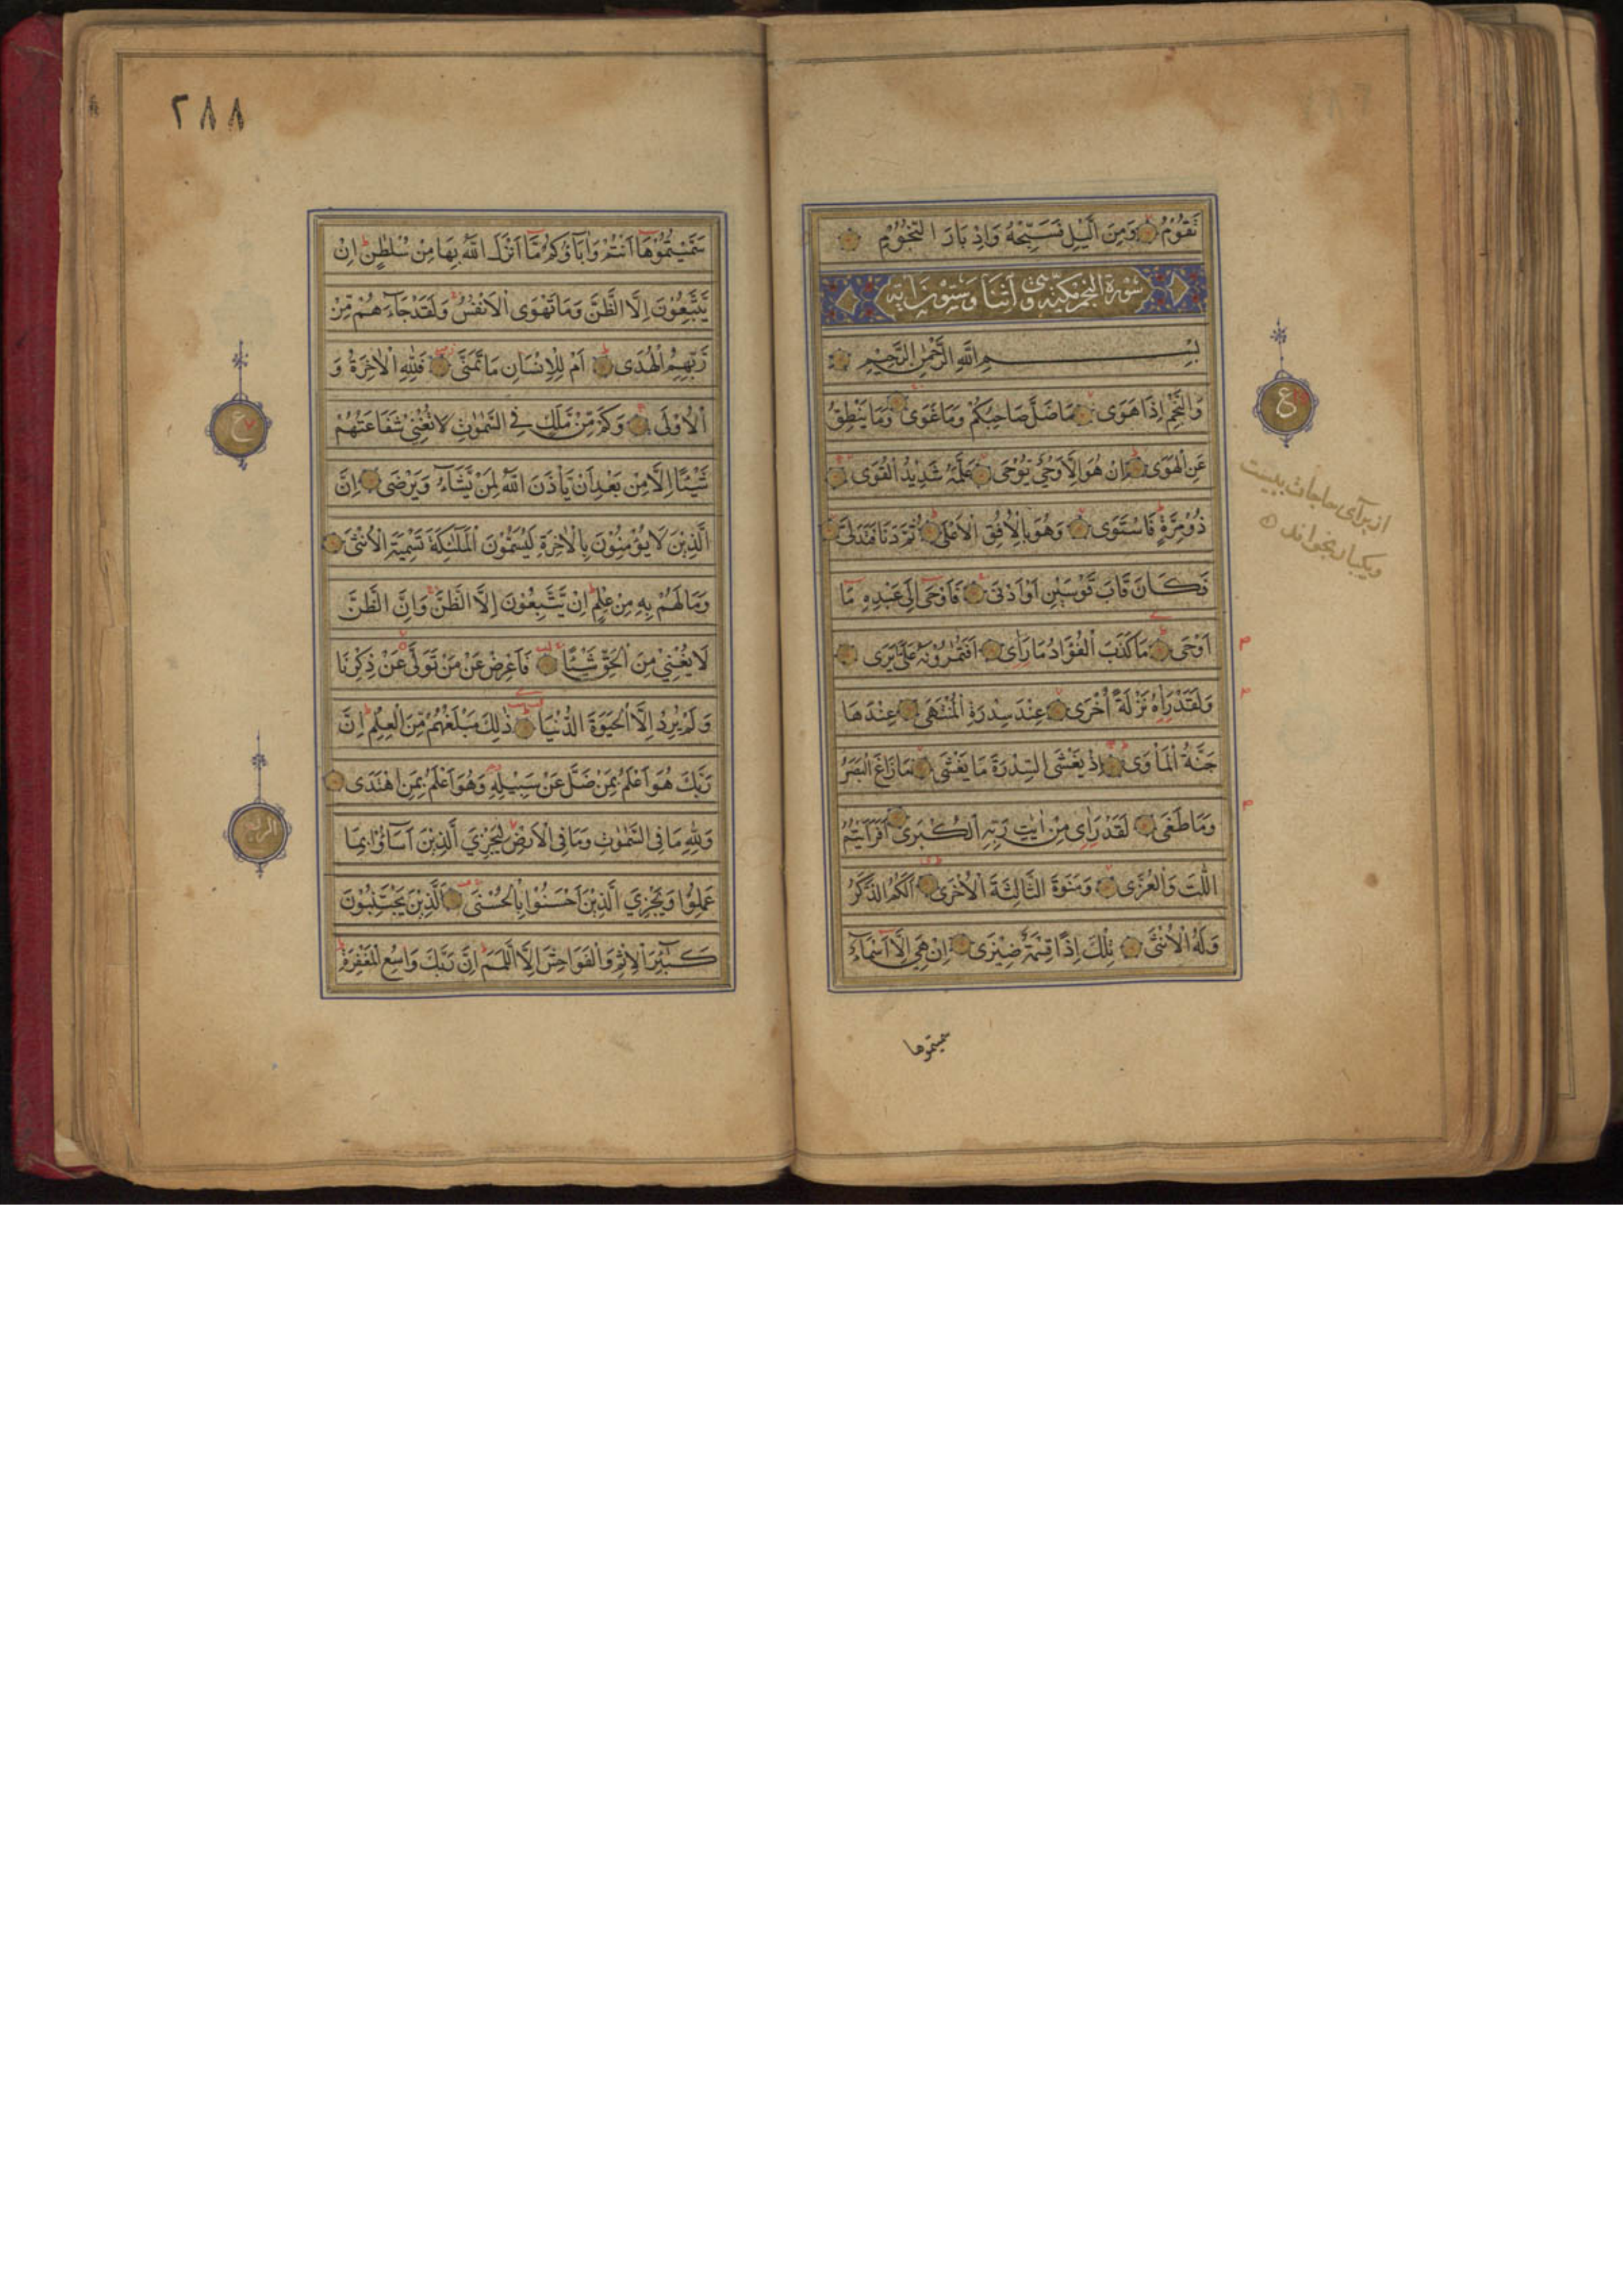 تَقُوْمُ وَمِنَ الَّيْلِ فَسَبِّحْهُ وَاِدْبَارَ النُّجُوْمِ
سُوْرَة النجم مكيّة وهى اثنَا وَستون اٰية
بِسْمِ اللّٰهِ الرَّحْمٰنِ الرَّحِيْمِ
وَالنَّجْمِ اِذَا هَوٰى مَا ضَلَّ صَاحِبُكُمْ وَمَا غَوٰى وَمَا يَنْطِقُ
عَنِ الْهَوٰى اِنْ هُوَ اِلَّا وَحْيٌ يُّوْحٰى عَلَّمَهُ شَدِيْدُ الْقُوٰى
ذُوْ مِرَّةٍ فَاسْتَوٰى وَهُوَ بِالْاُفُقِ الْاَعْلٰى ثُمَّ دَنَا فَتَدَلّٰى
فَكَانَ قَابَ قَوْسَيْنِ اَوْ اَدْنٰى فَاَوْحٰى اِلٰى عَبْدِهٖ مَا
اَوْحٰى مَا كَذَبَ الْفُؤَادُ مَا رَاٰى اَفَتُمٰرُوْنَهُ عَلٰى مَا يَرٰى
وَلَقَدْ رَاٰهُ نَزْلَةً اُخْرٰى عِنْدَ سِدْرَةِ الْمُنْتَهٰى عِنْدَهَا
جَنَّةُ الْمَاْوٰى اِذْ يَغْشَى السِّدْرَةَ مَا يَغْشٰى مَا زَاغَ الْبَصَرُ
وَمَا طَغٰى لَقَدْ رَاٰى مِنْ اٰيٰتِ رَبِّهِ الْكُبْرٰى اَفَرَاَيْتُمُ
اللّٰتَ وَالْعُزّٰى وَمَنٰوةَ الثَّالِثَةَ الْاُخْرٰى اَلَكُمُ الذَّكَرُ
وَلَهُ الْاُنْثٰى تِلْكَ اِذًا قِسْمَةٌ ضِيْزٰى اِنْ هِيَ اِلَّا اَسْمَآءٌ
سميتموها
ع
از برآى حاجات بيست
ويكبار بخوانند
٢٨٨
سَمَّيْتُمُوْهَا اَنْتُمْ وَاٰبَاؤُكُمْ مَّا اَنْزَلَ اللّٰهُ بِهَا مِنْ سُلْطٰنٍ اِنْ
يَّتَّبِعُوْنَ اِلَّا الظَّنَّ وَمَا تَهْوَى الْاَنْفُسُ وَلَقَدْ جَآءَهُمْ مِّنْ
رَّبِّهِمُ الْهُدٰى اَمْ لِلْاِنْسَانِ مَا تَمَنّٰى فَلِلّٰهِ الْاٰخِرَةُ وَ
الْاُوْلٰى وَكَمْ مِّنْ مَّلَكٍ فِي السَّمٰوٰتِ لَا تُغْنِيْ شَفَاعَتُهُمْ
شَيْئًا اِلَّا مِنْ بَعْدِ اَنْ يَّاْذَنَ اللّٰهُ لِمَنْ يَّشَآءُ وَيَرْضٰى اِنَّ
الَّذِيْنَ لَا يُؤْمِنُوْنَ بِالْاٰخِرَةِ لَيُسَمُّوْنَ الْمَلٰٓئِكَةَ تَسْمِيَةَ الْاُنْثٰى
وَمَا لَهُمْ بِهٖ مِنْ عِلْمٍ اِنْ يَّتَّبِعُوْنَ اِلَّا الظَّنَّ وَاِنَّ الظَّنَّ
لَا يُغْنِيْ مِنَ الْحَقِّ شَيْئًا فَاَعْرِضْ عَنْ مَنْ تَوَلّٰى عَنْ ذِكْرِنَا
وَلَمْ يُرِدْ اِلَّا الْحَيٰوةَ الدُّنْيَا ذٰلِكَ مَبْلَغُهُمْ مِّنَ الْعِلْمِ اِنَّ
رَبَّكَ هُوَ اَعْلَمُ بِمَنْ ضَلَّ عَنْ سَبِيْلِهٖ وَهُوَ اَعْلَمُ بِمَنِ اهْتَدٰى
وَلِلّٰهِ مَا فِي السَّمٰوٰتِ وَمَا فِي الْاَرْضِ لِيَجْزِيَ الَّذِيْنَ اَسَآؤُا بِمَا
عَمِلُوْا وَيَجْزِيَ الَّذِيْنَ اَحْسَنُوْا بِالْحُسْنٰى اَلَّذِيْنَ يَجْتَنِبُوْنَ
كَبٰٓئِرَ الْاِثْمِ وَالْفَوَاحِشَ اِلَّا اللَّمَمَ اِنَّ رَبَّكَ وَاسِعُ الْمَغْفِرَةِ
ع